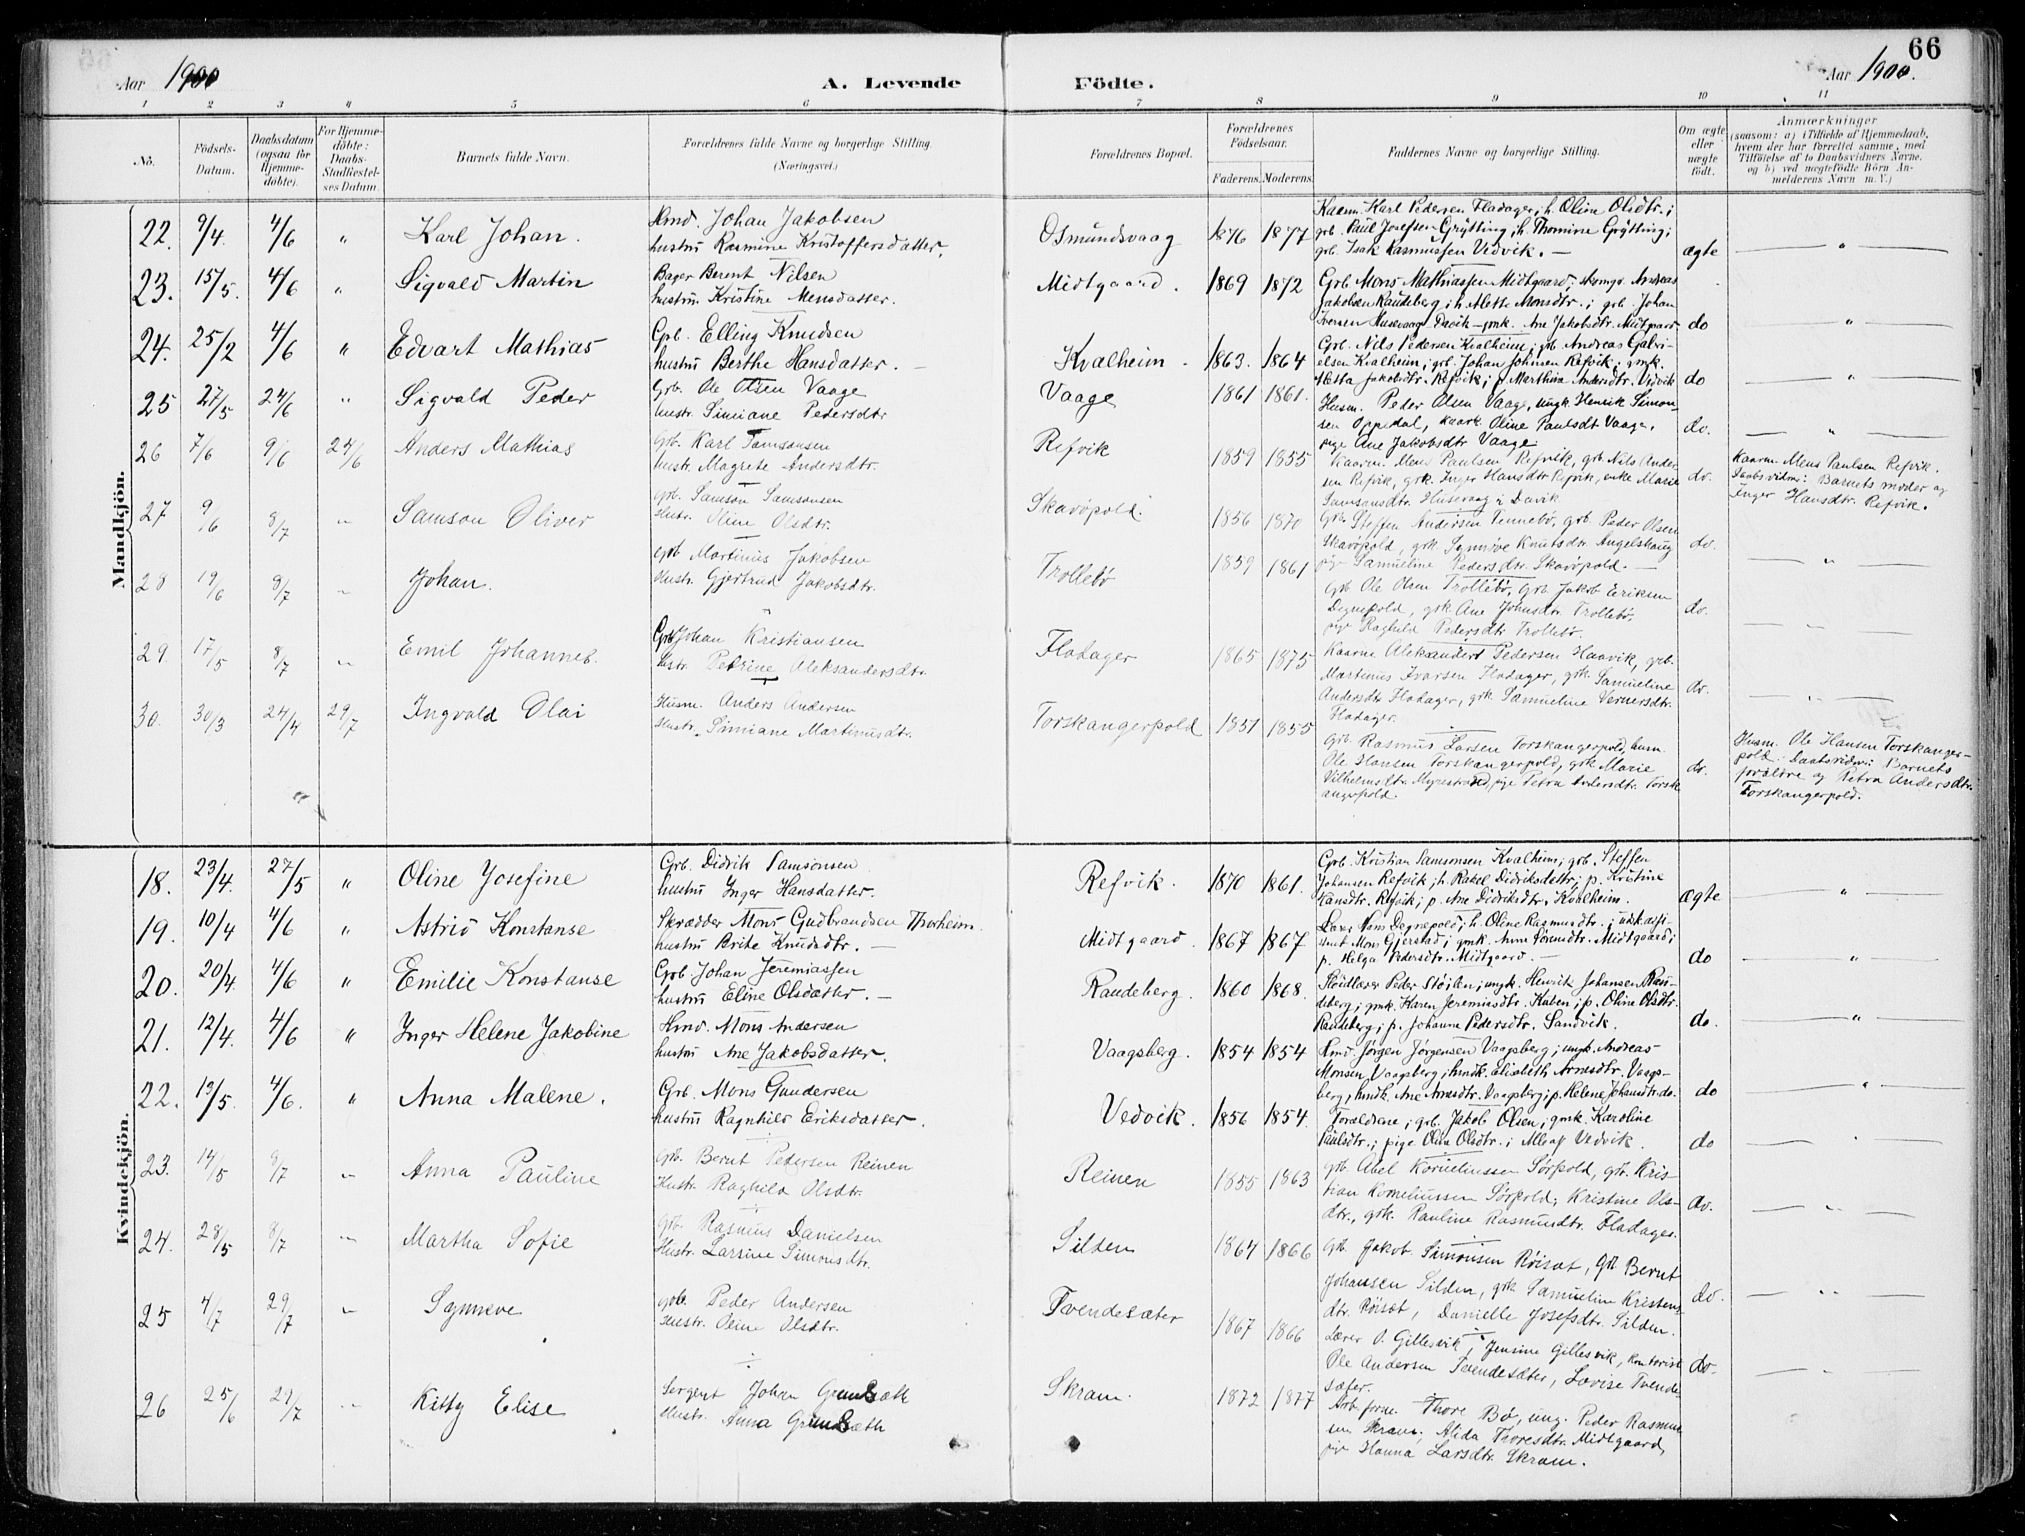 66
Aar 1900
A. Levende Födte.
Aar 1900.
1 2 3 4 5 6 7 8 9 10 11
No.
Födsels-
Datum.
Daabsdatum
(ogsaa for
Hjemme-
döbte).
For Hjemme-
döbte:
Daabs-
Stadfæstel-
ses Datum.
Barnets fulde Navn.
Forældrenes fulde Navne og borgerlige Stilling.
(Næringsvei.)
Forældrenes Bopæl.
Forældrenes
Födselsaar.
Faderens. Moderens.
Faddernes Navne og borgerlige Stilling.
Om ægte
eller
uægte
födt.
Anmærkninger
(saasom: a) i Tilfælde af Hjemmedaab,
hvem der har forrettet samme, med
Tilföielse af to Daabsvidners Navne,
og b) ved uægtefödte Börn An-
melderens Navn m. V.)
Mandkjön.
22. 9/4. 4/6 " Karl Johan.
Hmd. Johan Jakobsen
hustru Rasmine Kristoffersdatter.
Osmundsvaag 1876 1877
Kaarm. Karl Pedersen Fladager; h. Oline Olsdtr.;
grb. Paul Josefsen Grytting; h. Thomine Grytting;
grb. Isak Rasmussen Vedvik. —
ægte — " —
23. 15/5. 4/6 " Sigvald Martin
Bager Berent Nilsen
hustru Kristine Monsdatter.
Midtgaard. 1869 1872
Grb. Mons Mathiassen Midtgaard; Andreas
Jakobsen Raudeberg; h. Mette Monsdtr.; grb. Johan
Iversen Husevaag Davik — gmk. Ane Jakobsdtr. Midtgaard
do — " —
24. 25/2 4/6 " Edvart Mathias
Grb. Elling Knudsen
hustru Berthe Hansdatter. —
Kvalheim 1863. 1864
Grb. Nils Pedersen Kvalheim; grb Andreas Gabri-
elsen Kvalheim; grb. Johan Johnsen Refvik; gmk.
Jakobsdtr. Refvik; p. Marthina Andersdtr. Vedvik
do — " —
25 27/5 24/6 " Sigvald Peder
Grb. Ole Olsen Vaage
hustr. Simiane Pedersdtr
Vaage 1861 1861.
Husm. Peder Olsen Vaage, ungk. Henrik Simon-
sen Oppedal, kaark. Oline Paulsdt Vaage,
pige Ane Jakobsdtr Vaage
do. — " —
26 7/6 9/6 24/6 Anders Mathias
Grb. Karl Samsonsen
hustr. Magrete Andersdtr.
Refvik 1859 1855
Kaarm. Mens Paulsen Refvik, grb Nils Ander-
sen Refvik, grk. Inger Hansdtr Refvik, enke Marie
Samsonsdtr Husevaag i Davik
do.
Kaarm Mens Paulsen Refvik.
Daabsvidner: Barnets moder og
Inger Hansdtr. Refvik.
27 9/6 8/7 " Samson Oliver
Grb. Samson Samsonsen
Hustr. Oline Olsdtr.
Skavøpold. 1856 1870
Grb. Steffen Andersen Tennebø, grb. Peder Olsen
Skavöpold, grk Synnøve Knutsdtr Angelshaug
pige Samueline Pedersdtr. Skavöpold. —
do. — " —
28 19/6 8/7 " Johan.
Grb Martinus Jakobsen
Hustr. Gjertrud Jakobsdtr.
Trollebø 1859 1861
Grb Ole Olsen Trollebö, Grb Jakob Eriksen
Degnepold, grk Ane Johnsdtr Trollebø,
pige Raghild Pedersdtr Trollebö.
do. — " —
29 17/5 8/7 " Emil Johannes.
Grb Johan Kristiansen
Hustr. Petrine Aleksandersdtr.
Fladager 1865 1875
Kaarm Aleksandert Pedersen Haavik, grb.
Martinus Ivarsen Fladager, grk. Samueline
Andersdtr Fladager, grk. Samueline Vernersdtr.
Fladager.
do. — " —
30. 30/3 24/4 29/7 Ingvald Olai
Husm. Anders Andersen
Hustr. Simiane Martinusdtr.
Torskangerpold 1851 1855
Grb. Rasmus Larsen Torskangerpold, husm.
Ole Hansen Torskangerpold, grk Marie
Vilhelmsdtr Myrestrand, pige Petra Andersdtr. Torsk-
angerpold
do.
Husm. Ole Hansen Torskanger-
pold. Daabsvidner: Barnets
forældre og Petra Andersdtr.
Torskangerpold.
Kvindekjön.
18. 23/4. 27/5 " Oline Josefine
Grb. Didrik Samsonsen
hustru Inger Hansdatter.
Refvik. 1870 1861.
Grb. Kristian Samsonsen Kvalheim; grb. Steffen
Johansen Refvik; h. Rakel Didriksdatter; p. Kristine
Hansdtr. Refvik; p. Ane Didriksdtr. Kvalheim.
ægte — " —
19. 10/4 4/6 " Astrid Konstanse
Skrædder Mons Gudbrandsen Thorheim.
hustru Brite Knudsdtr. —
Midtgaard. 1867 1867
Lærer Hans Degnepold; h. Oline Rasmusdtr.; udsk.assi-
stent Mons Gjerstad; gmk. Anne Sørensdtr. Midtgaard;
p. Helga Pedersdtr. Midtgaard. —
do — " —
20. 20/4. 4/6 " Emilie Konstanse
Grb Johan Jeremiassen
hustru Eline Olsdatter. —
Raudeberg. 1860 1868.
Peder Støilen; ungk. Henrik Johansen Rau-
deberg; gmk. Karen Jeremiasdtr. Kuben; p. Oline Olsdtr.
Raudeberg; p. Johanne Pedersdtr. Sandvik.
do. — " —
21. 12/4. 4/6 " Inger Helene Jakobine
Hmd. Mons Andersen
hustru Ane Jakobsdatter.
Vaagsberg. 1854 1854
Hmd. Jørgen Jørgensen Vaagsberg; ungk. Andreas
Monsen Vaagsberg; hmdk. Elisabeth Arnesdtr. Vaags-
berg; hmdk. Ane Arnesdtr. Vaagsberg; p. Helene Johansdtr. do.
do — " —
22. 13/5. 4/6. " Anna Malene.
Grb. Mons Gundersen
hustru Ragnhild Eriksdatter.
Vedvik. 1856 1854.
Forældrene; grb. Jakob Olsen; gmk. Karoline
Paulsdtr.; pige Olina Olsdtr.; Alle af Vedvik.
do
23. 14/5 8/7 " Anna Pauline
Grb. Bernt Pedersen Reinen
Hustr. Raghild Olsdtr.
Reinen 1855 1863
grb. Abel Korneliussen Sörpold, grb. Kris-
tian Korneliussen Sörpold; Kristine Ols-
dtr., grk. Pauline Rasmusdtr. Fladager.
do. — " —
24. 28/5 8/7 " Martha Sofie
Grb. Rasmus Danielsen
Hustr. Larsine Simonsdtr.
Silden 1864 1866
Grb. Jakob Simonsen Röisæt, Grb Bernt
Johansen Silden, grk Samueline Kristens-
dtr. Röisæt, Danielle Josefsdtr. Silden.
do. — " —
25 4/7 29/7 " Synneve
grb. Peder Andersen
Hustr. Oline Olsdtr.
Tvendesæter 1867 1866
Lærer O. Gillesvik, Jensine Gillesvik, kontorist
Ole Andersen Tvendesæter, Lovise Tvende-
sæter.
do. — " —
26 25/6 29/7 " Kitty Elise
Sergent Johan Grundsæth
Hustr. Anna Grundsæth
Skram. 1872 1877
Arb.form. Thore Bø, ung. Peder Rasmus-
sen Skram, Alida Thoresdtr. Midtgaard,
pige Hanna Larsdtr. Skram.